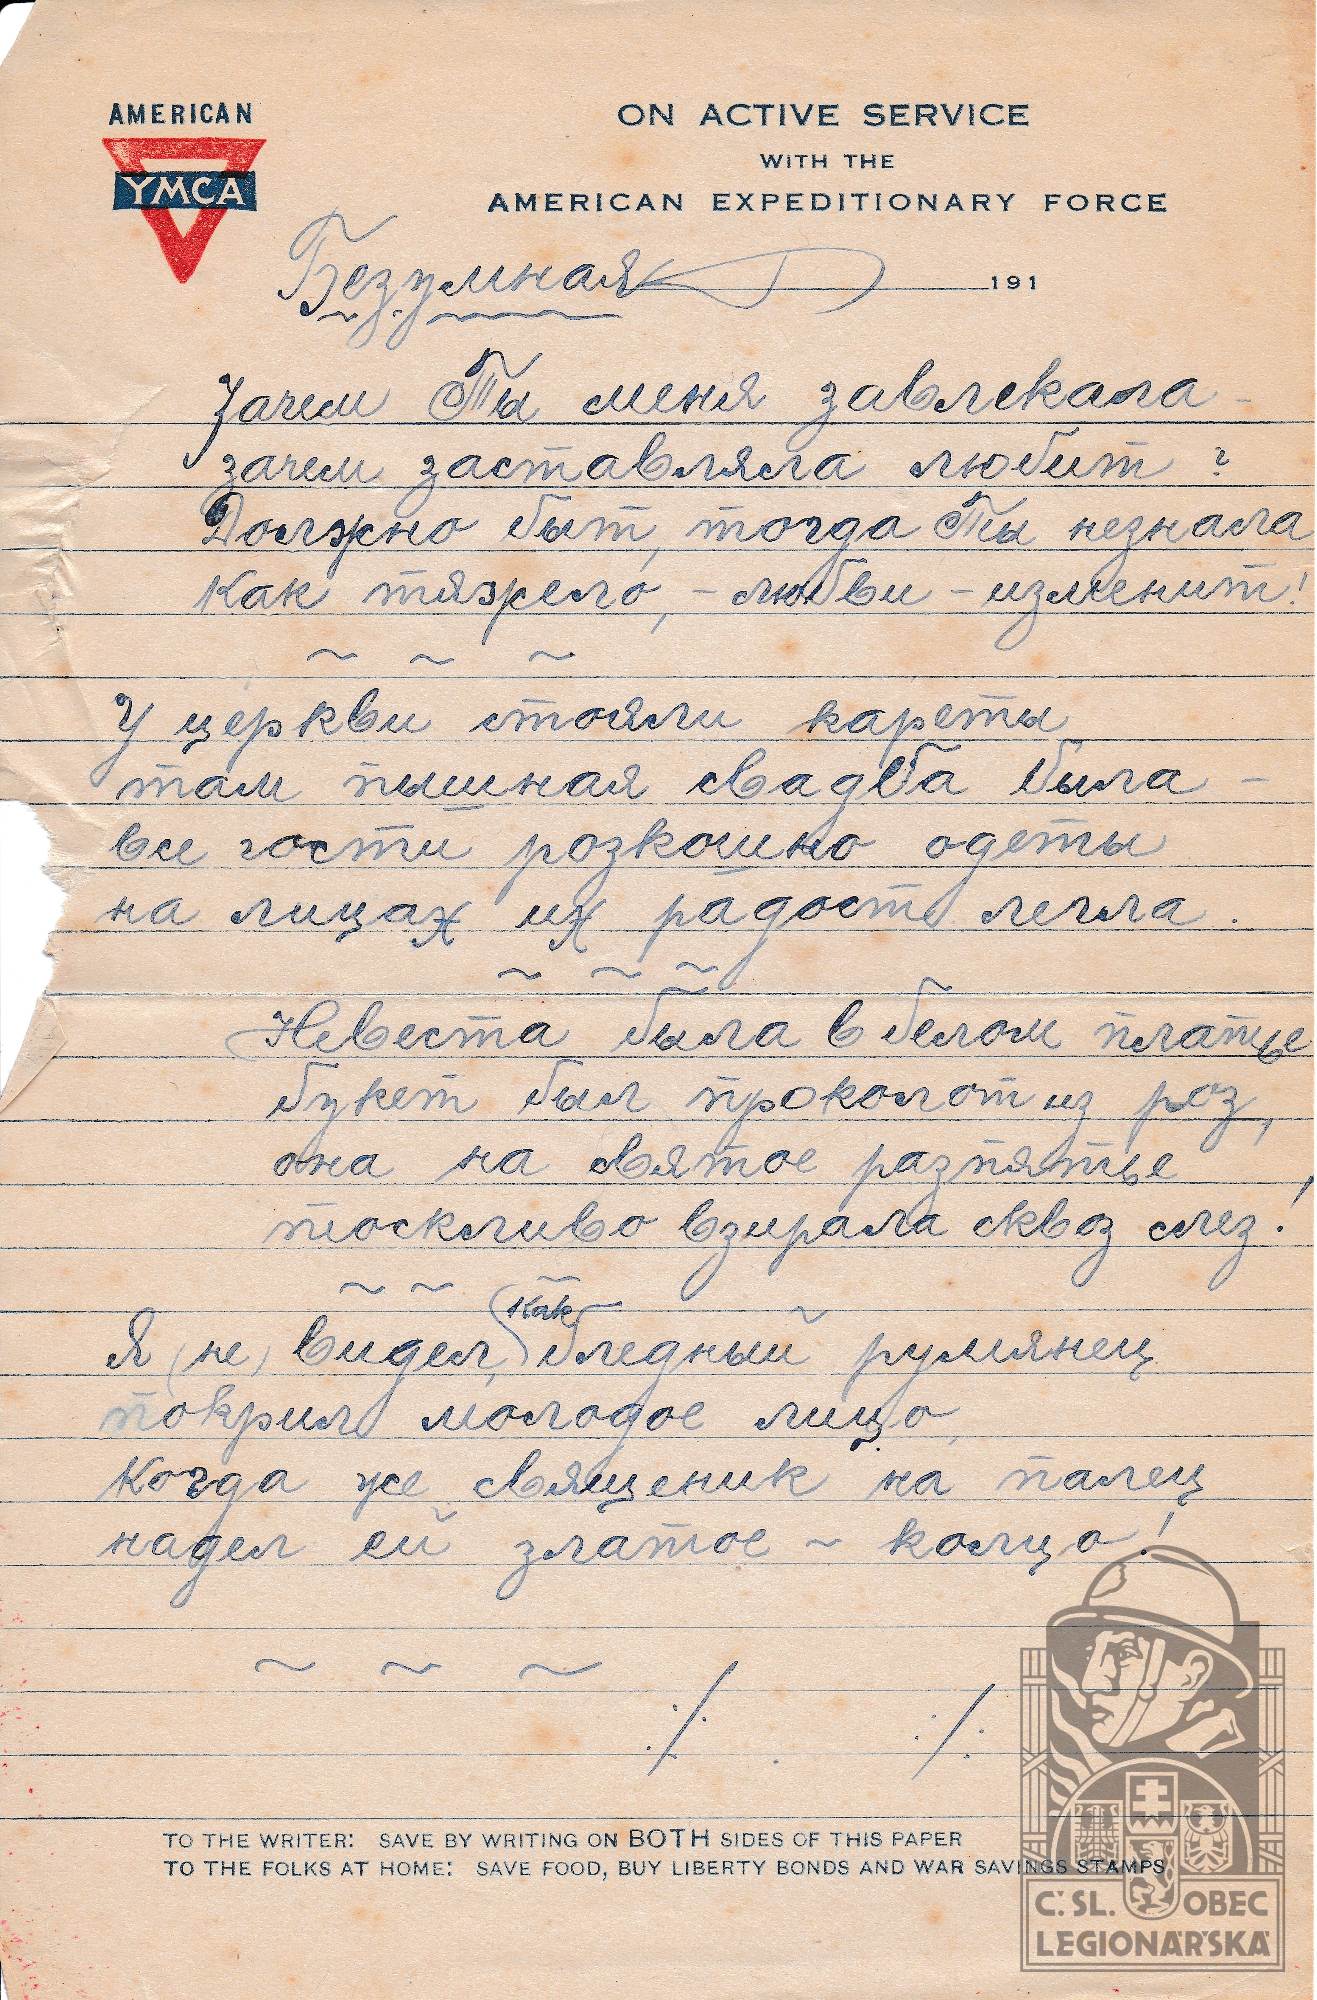 AMERICAN
YMCA
ON ACTIVE SERVICE
WITH THE
AMERICAN EXPEDITIONARY FORCE
Безумная
191
Зачем Ты меня завлекала -
зачем заставляла любит ?
Должно быт, тогда Ты незнала
как тяжело, - любви - изменит!
~ ~ ~
У церкви стояли кареты
там пышная свадба была -
все гости розкошно одеты
на лицах их радост легла .
~ ~ ~
Невеста была в белом платье
букет был проколот из роз,
она на святое разпятье
тоскливо взирала сквоз слез!
~ ~ ~
Я (не) видел, как бледный румянец
покрил молодое лицо,
Когда же священик на палец
надел ей златое ~ колцо!
~ ~ ~
./. ./.
TO THE WRITER: SAVE BY WRITING ON BOTH SIDES OF THIS PAPER
TO THE FOLKS AT HOME: SAVE FOOD, BUY LIBERTY BONDS AND WAR SAVINGS STAMPS
Č.SL. OBEC
LEGIONÁŘSKÁ